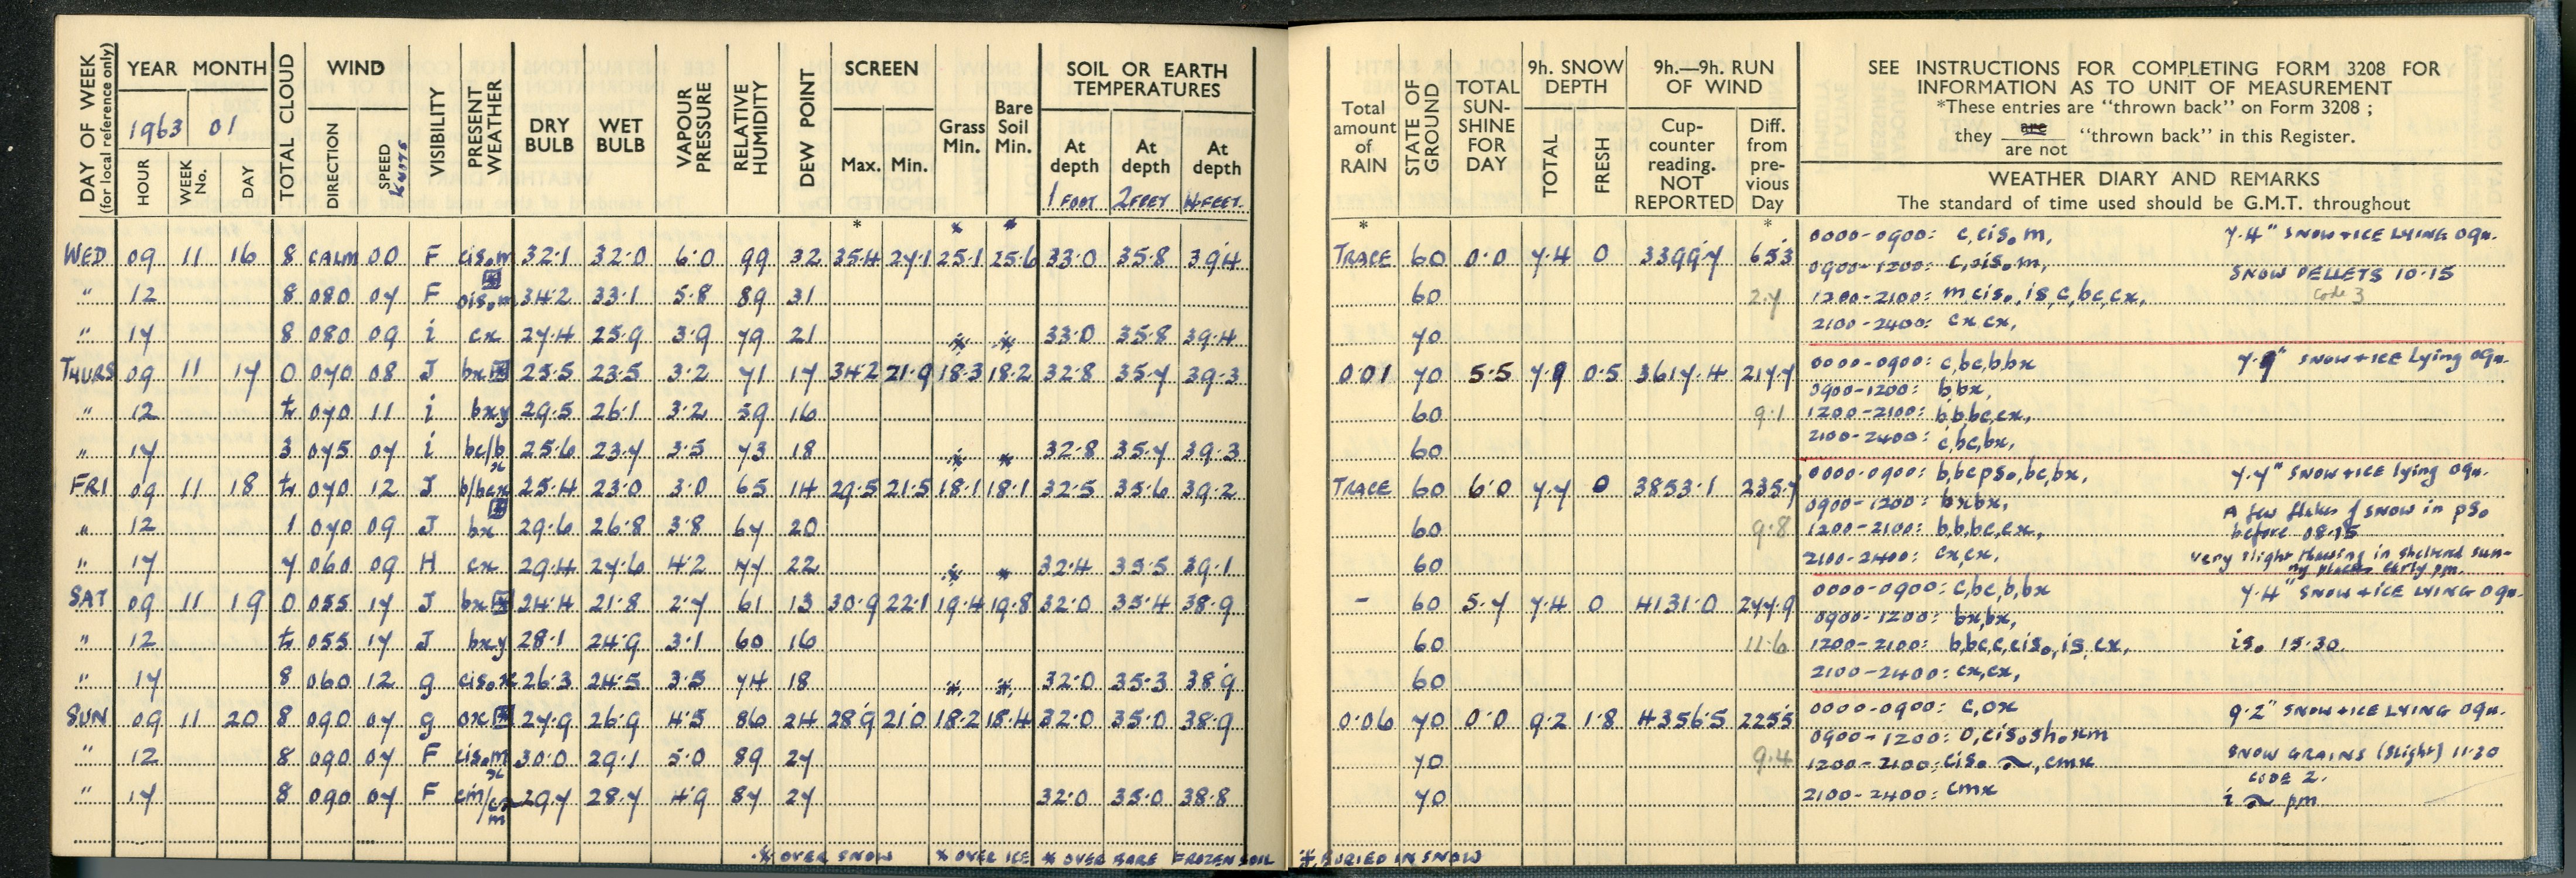 DAY OF WEEK (for local reference only) YEAR MONTH TOTAL CLOUD WIND VISIBILITY PRESENT WEATHER DRY BULB WET BULB VAPOUR PRESSURE RELATIVE HUMIDITY DEW POINT SCREEN Grass Min. Bare Soil Min. SOIL OR EARTH TEMPERATURES
1963 01
HOUR WEEK No. DAY DIRECTION SPEED KNOTS Max. Min. At depth At depth At depth
1 FOOT 2 FEET 4 FEET
WED 09 11 16 8 CALM 00 F cis₀m 32·1 32·0 6·0 99 32 35·4 27·1 25·1 25·6 33·0 35·8 39·4
" 12 8 080 07 F 34·2 33·1 5·8 89 31
" 17 8 080 09 i cx 27·4 25·9 3·9 79 21 33·0 35·8 39·4
THURS 09 11 17 0 070 08 J bx 25·5 23·5 3·2 71 17 34·2 21·9 18·3 18·2 32·8 35·7 39·3
" 12 tr 070 11 i bxy 29·5 26·1 3·2 59 16
" 17 3 075 07 i bc/b x 25·6 23·7 3·5 73 18 32·8 35·7 39·3
FRI 09 11 18 tr 070 12 J b/bcx 25·4 23·0 3·0 65 14 29·5 21·5 18·1 18·1 32·5 35·6 39·2
" 12 1 070 09 J bx 29·6 26·8 3·8 67 20
" 17 7 060 09 H cx 29·4 27·6 4·2 77 22 32·4 35·5 39·1
SAT 09 11 19 0 055 17 J bx 24·4 21·8 2·7 61 13 30·9 22·1 19·4 19·8 32·0 35·4 38·9
" 12 tr 055 17 J bxy 28·1 24·9 3·1 60 16
" 17 8 060 12 g cis₀x 26·3 24·5 3·5 74 18 32·0 35·3 38·9
SUN 09 11 20 8 090 07 g ox 27·9 26·9 4·5 86 24 28·9 21·0 18·2 18·4 32·0 35·0 38·9
" 12 8 090 07 F cis₀m x 30·0 29·1 5·0 89 27
" 17 8 090 07 F cm/cx m 29·7 28·7 4·9 87 27 32·0 35·0 38·8
OVER SNOW OVER ICE OVER BARE FROZEN SOIL
Total amount of RAIN STATE OF GROUND TOTAL SUNSHINE FOR DAY 9h. SNOW DEPTH 9h.—9h. RUN OF WIND
TOTAL FRESH Cup-counter reading. NOT REPORTED Diff. from previous Day
SEE INSTRUCTIONS FOR COMPLETING FORM 3208 FOR
INFORMATION AS TO UNIT OF MEASUREMENT
*These entries are "thrown back" on Form 3208 ;
they are are not "thrown back" in this Register.
WEATHER DIARY AND REMARKS
The standard of time used should be G.M.T. throughout
TRACE 60 0·0 7·4 0 3399·7 65·3 0000-0900: c,cis₀m, 7·4" SNOW+ICE LYING 09h.
0900-1200: c,ois₀m, SNOW PELLETS 10·15
60 2·7 1200-2100: mcis₀,is,c,bc,cx, Code 3
70 2100-2400: cx cx,
0·01 70 5·5 7·9 0·5 3617·4 217·7 0000-0900: c,bc,b,bx 7·9" SNOW+ICE lying 09h.
0900-1200: b,bx,
60 9·1 1200-2100: b,b,bc,cx,
60 2100-2400: c,bc,bx,
TRACE 60 6·0 7·7 0 3853·1 235·7 0000-0900: b,bcps₀,bc,bx, 7·7" SNOW+ICE lying 09h.
0900-1200: bxbx, A few flakes of SNOW in ps₀
60 9·8 1200-2100: b,b,bc,cx, before 08·15
60 2100-2400: cx,cx, very slight thawing in sheltered sun-
ny places early pm.
- 60 5·7 7·4 0 4131·0 277·9 0000-0900: c,bc,b,bx 7·4" SNOW+ICE LYING 09h.
0900-1200: bx,bx,
60 11·6 1200-2100: b,bc,c,cis₀,is,cx, is₀ 15·30.
60 2100-2400: cx,cx,
0·06 70 0·0 9·2 1·8 4356·5 225·5 0000-0900: c,ox 9·2" SNOW+ICE LYING 09h.
0900-1200: o,cis₀sh₀xm
70 9·4 1200-2100: cis₀ ,cmx SNOW GRAINS (Slight) 11·30
CODE 2.
70 2100-2400: cmx i pm
BURIED IN SNOW